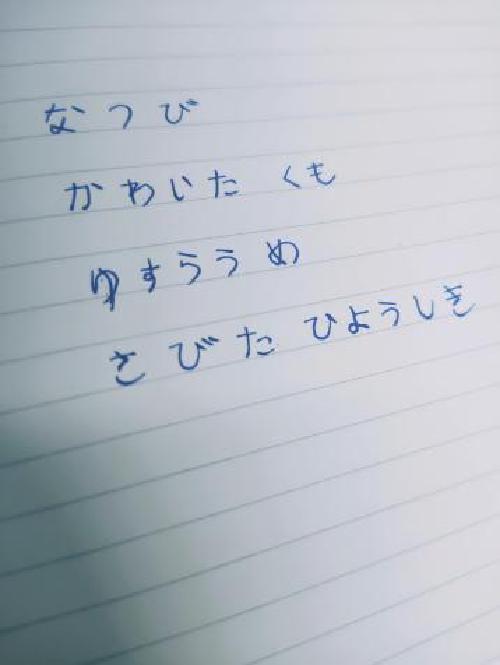 なつび
かわいた くも
ゆすらうめ
さびた ひようしき